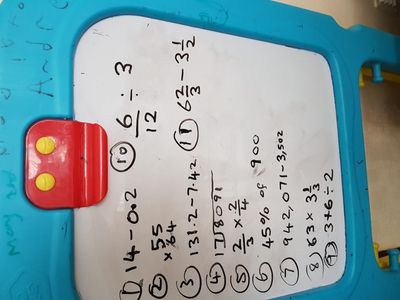 1) 14 - 0.2
② 55
x 64
③ 131.2 - 7.42
④ 17⟌8091
⑤ 2/3 x 2/4
⑥ 45% of 900
⑦ 942,071 - 3,502
⑧ 63 x 3 1/3
⑨ 3+6÷2
⑩ 6/12 ÷ 3
⑪ 6 2/3 - 3 1/2